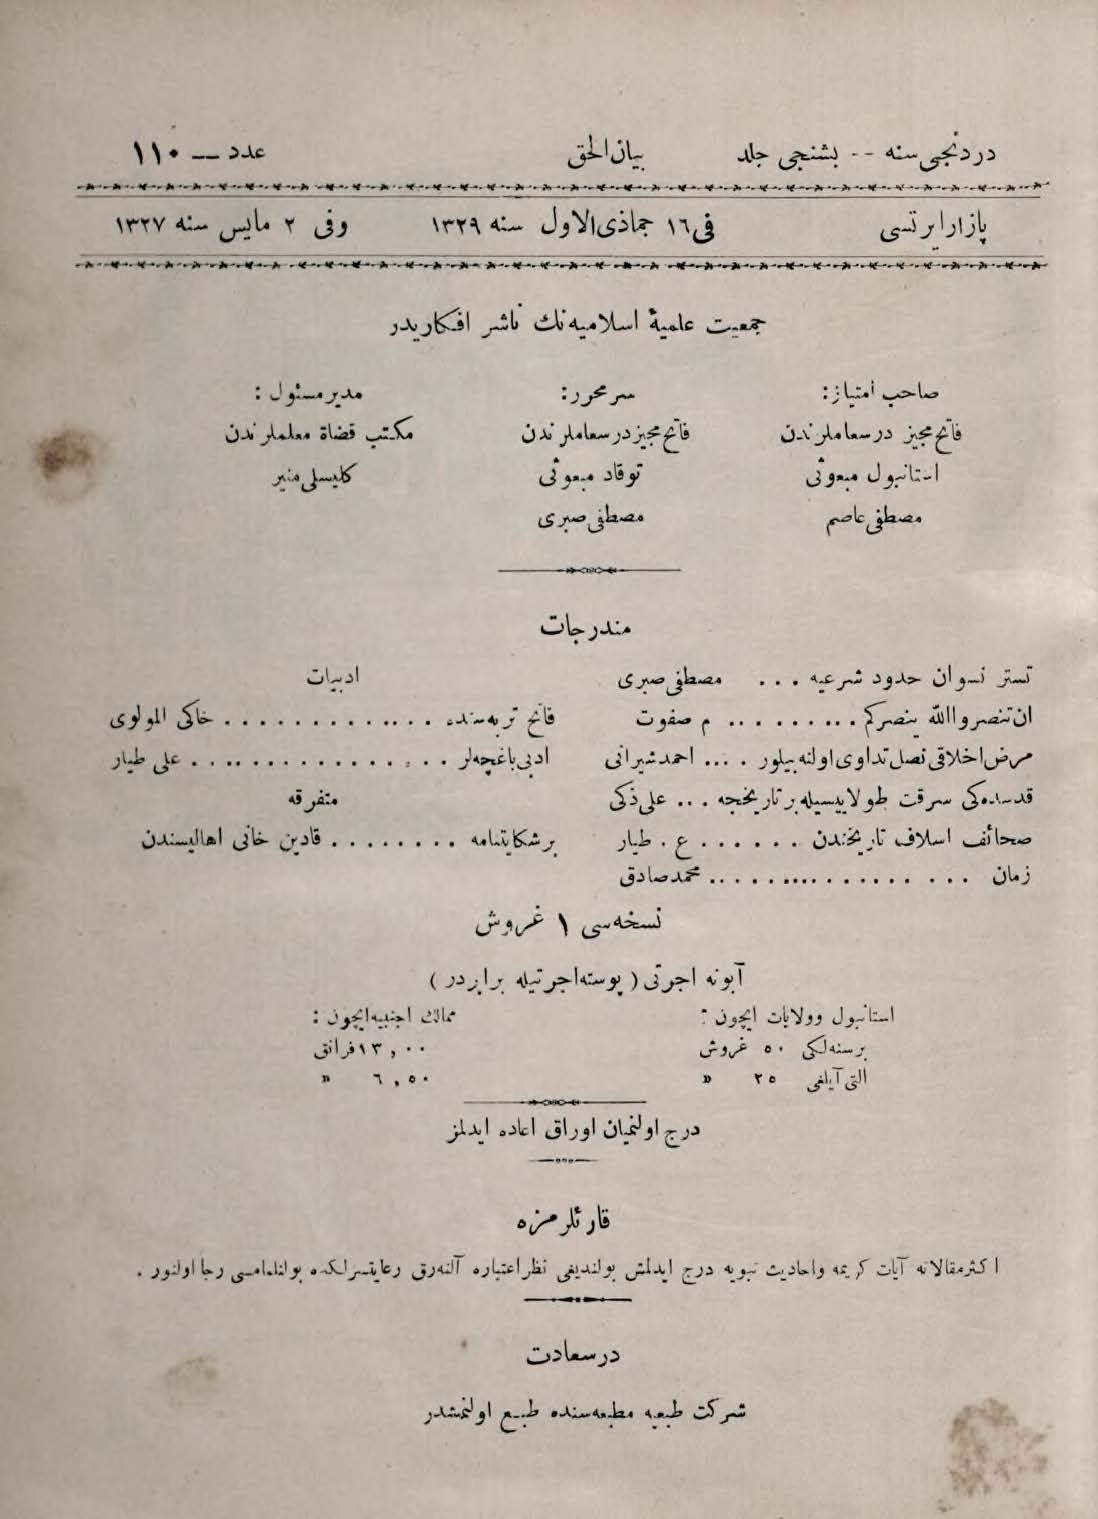 دردنجی سنه -- بشنجی جلد
بیان الحق
عدد — ۱۱۰
پازار ایرتسی
فی ۱۶ جماذی الاول سنه ۱۳۲۹
وفی ۲ مایس سنه ۱۳۲۷
جمعیت علمیۀ اسلامیه نك ناشر افكاریدر
صاحب امتیاز:
فاتح مجیز درسعاملرندن
استانبول مبعوثی
مصطفی عاصم
سرمحرر:
فاتح مجیز درسعاملرندن
توقاد مبعوثی
مصطفی صبری
مدیر مسئول :
مكتب قضاة معلملرندن
كلیسلی منیر
مندرجات
تستر نسوان حدود شرعیه ... مصطفی صبری
ان تنصرواالله ینصركم ......... م صفوت
مرض اخلاقی نصل تداوی اولنه بیلور ..... احمد شیرانی
قدسده كی سرقت طولاییسیله بر تاریخجه ... علی ذكی
صحائف اسلاف تاریخندن ...... ع . طیار
زمان ................ محمد صادق
ادبیات
فاتح تربه سنده ............ خاكی المولوی
ادبی باغچه لر ................ علی طیار
متفرقه
بر شكایتنامه ........ قادین خانی اهالیسندن
نسخه سی ۱ غروش
آبونه اجرتی ( پوسته اجرتیله برابردر )
استانبول وولایات ایچون :
بر سنه لكی ۵۰ غروش
التی آیلغی ۲۵ »
ممالك اجنبیه ایچون :
۱۳,۰۰ فرانق
۶,۵۰ »
درج اولنمیان اوراق اعاده ایدلمز
قارئلرمزه
اكثر مقالاته آیات كریمه واحادیث نبویه درج ایدلمش بولندیغی نظر اعتباره آلنه رق رعایتسزلكده بولنلمامسی رجا اولنور .
درسعادت
شركت طبعیه مطبعه سنده طبع اولنمشدر